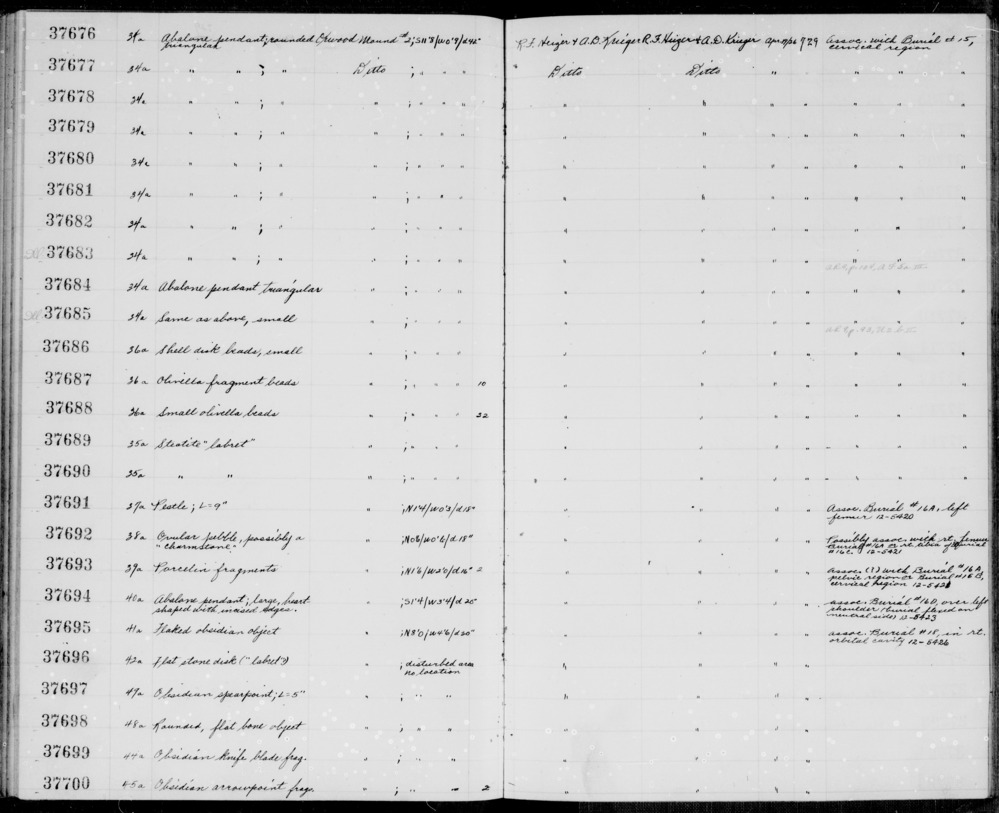 37676 34a Abalone pendant; rounded Orwood Mound #2; S11'8/W0'9/d42" R.F. Heizer & A.D. Krieger R.F. Heizer & A.D. Krieger Assoc. with Burial #15,
triangular cervical region
37677 34a " " ; " Ditto ; " " " Ditto Ditto " " " " "
37678 34a " " ; " " ; " " " " " " " " " "
37679 34a " " ; " " ; " " " " " " " " " "
37680 34a " " ; " " ; " " " " " " " " " "
37681 34a " " ; " " ; " " " " " " " " " "
37682 34a " " ; " " ; " " " " " " " " " "
37683 34a " " ; " " ; " " " " " " " " " "
37684 34a Abalone pendant, triangular " ; " " " " " " " " " "
37685 34a Same as above, small " ; " " " " " " " " " "
37686 36a Shell disk beads, small " ; " " " " " " " " " "
37687 36a Olivella fragment beads " ; " " " 10 " " " " " " "
37688 36a Small olivella beads " ; " " " 32 " " " " " " "
37689 35a Steatite "labret" " ; " " " " " " " " " "
37690 35a " " " ; " " " " " " " " " "
37691 37a Pestle; L=9" " ; N1'4/W0'3/d18" " " " " Assoc. Burial #16A, left
femur 12-5420
37692 38a Ovular pebble, possibly a " ; N0'6/W0'6/d18" " " " " Possibly assoc. with rt. femur
"charmstone" Burial #16A or rt. tibia of Burial
#16C. 12-5421
37693 39a Porcelin fragments " ; N1'6/W2'0/d16" 2 " " " " Assoc. (?) with Burial #16A,
pelvic region or Burial #16B,
cervical region 12-5421
37694 40a Abalone pendant; large, heart " ; S1'4/W3'4/d25" " " " " assoc. Burial #16D, over left
shaped with incised edges. shoulder (burial flexed on
ventral side) 12-5423
37695 41a Flaked obsidian object " ; N8'0/W4'6/d20" " " " " assoc. Burial #18, in rt.
orbital cavity 12-5426
37696 42a Flat stone disk ("labret"?) " ; disturbed area " " " "
no location
37697 47a Obsidian spearpoint; L=5" " ; " " " " " "
37698 48a Rounded, flat bone object " ; " " " " " "
37699 44a Obsidian knife blade frag. " ; " " " " " "
37700 45a Obsidian arrowpoint frags. " ; " " 2 " " " "